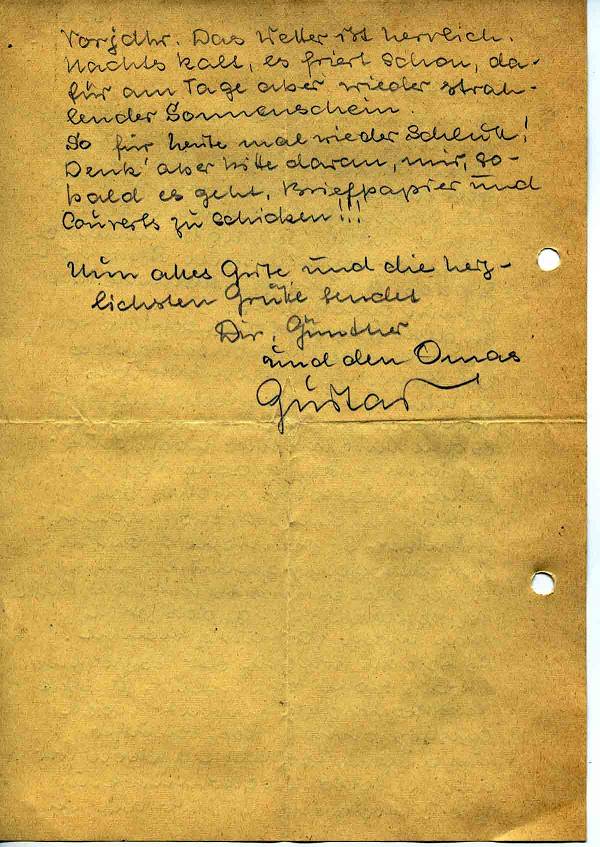 Vorjahr. Das Wetter ist herrlich.
Nachts kalt, es friert schon, da-
für am Tage aber wieder strah-
lender Sonnenschein.
So für heute mal wieder Schluß!
Denk' aber bitte daran, mir, so-
bald es geht, Briefpapier und
Couverts zu schicken!!!
Nun alles Gute und die herz-
lichsten Grüße sendet
Dir, Günther
und den Omas
Gustav